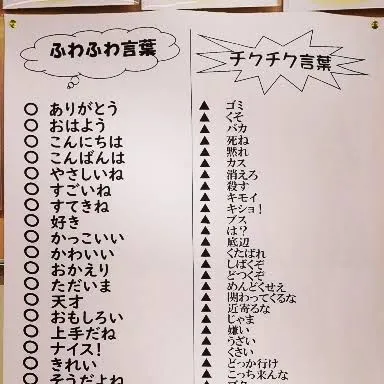 ふわふわ言葉
○ ありがとう
○ おはよう
○ こんにちは
○ こんばんは
○ やさしいね
○ すごいね
○ すてきね
○ 好き
○ かっこいい
○ かわいい
○ おかえり
○ ただいま
○ 天才
○ おもしろい
○ 上手だね
○ ナイス!
○ きれい
○ そうだよね
チクチク言葉
▲ ゴミ
▲ くそ
▲ バカ
▲ 死ね
▲ 黙れ
▲ カス
▲ 消えろ
▲ 殺す
▲ キモイ
▲ キショ!
▲ ブス
▲ は?
▲ 底辺
▲ くたばれ
▲ しばくぞ
▲ どつくぞ
▲ めんどくせえ
▲ 関わってくるな
▲ 近寄るな
▲ じゃま
▲ 嫌い
▲ うざい
▲ くさい
▲ どっか行け
▲ こっち来んな